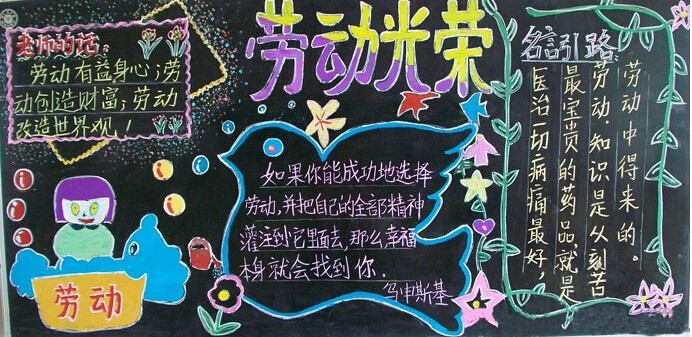 劳动光荣
老师的话：
劳动有益身心；劳
动创造财富；劳动
改造世界观！
劳动
如果你能成功地选择
劳动,并把自己的全部精神
灌注到它里面去,那么幸福
本身就会找到你.
乌申斯基
名言引路
医治一切病痛最好,
最宝贵的药品,就是
劳动,知识是从刻苦
劳动中得来的。